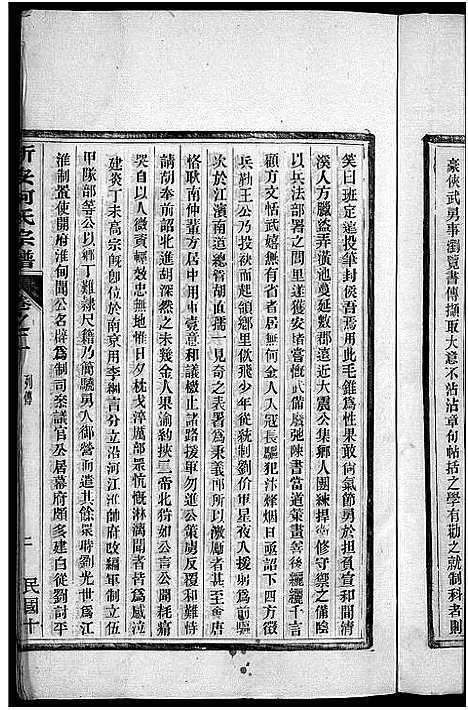 豪俠武男事瀏覽書傳擷取大意不沾沾章句帖括之學有勸之就制科者則
笑曰班定遠投筆封侯吾焉用此毛錐爲性果敢尚氣節勇於担負宣和間清
溪人方臘盜弄潢池蔓延數郡遠近大震公集鄉人團練捍衛修守禦之備陰
以兵法部署之閭里遂得安堵嘗慨武備廢弛陳書當道策畫善後纚纚千言
顧方文恬武嬉無有省者居無何金人入冦長驅犯汴烽烟日亟詔下四方徵
兵勤王公乃投袂而起領鄉里伙飛少年從統制劉价軍星夜入援躬爲前驅
次於江濱南道總管胡直孺一見奇之表署爲秉義郎所以激勵者甚至會唐
恪耿南仲輩方居中用事壹意和議檄止諸路援軍勿進公策虜反覆和難恃
請胡奉前詔北進胡深然之未幾金人果渝約挾二帝北狩如公言公聞耗痛
哭自以人微資輕效忠無地惟日夕枕戈淬厲部眾慷慨淋漓聞者皆爲感泣
建炎丁未高宗旣卽位於南京用李綱言分立沿河江淮帥府改編軍制立伍
甲隊部等公以鄉丁難隸尺籍乃簡驍男入御營而遣其餘眾時劉光世爲江
淮制置使開府淮甸聞公名辟爲制司叅議官丛居幕府頗多建白從劉討平
新安柯氏宗譜 卷之二 列傳 二 民國十